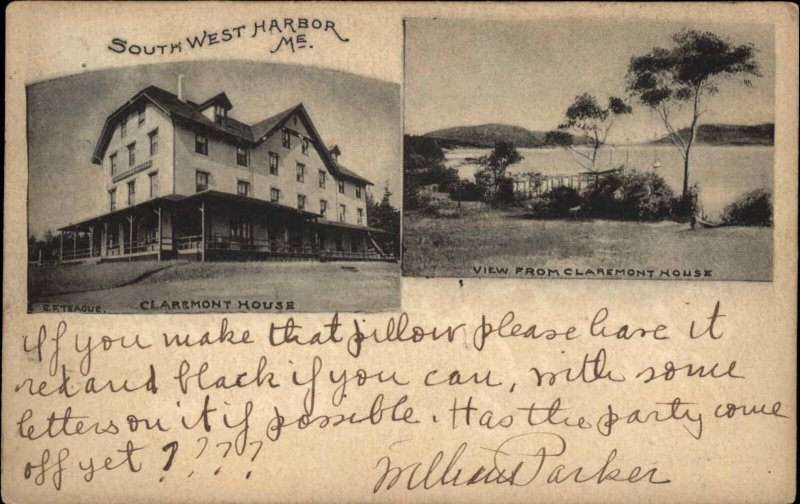 SOUTH WEST HARBOR
ME.
E.F. TEAGUE.
CLAREMONT HOUSE
VIEW FROM CLAREMONT HOUSE
If you make that pillow please have it
red and black if you can, with some
letters on it if possible. Has the party come
off yet????
William Parker